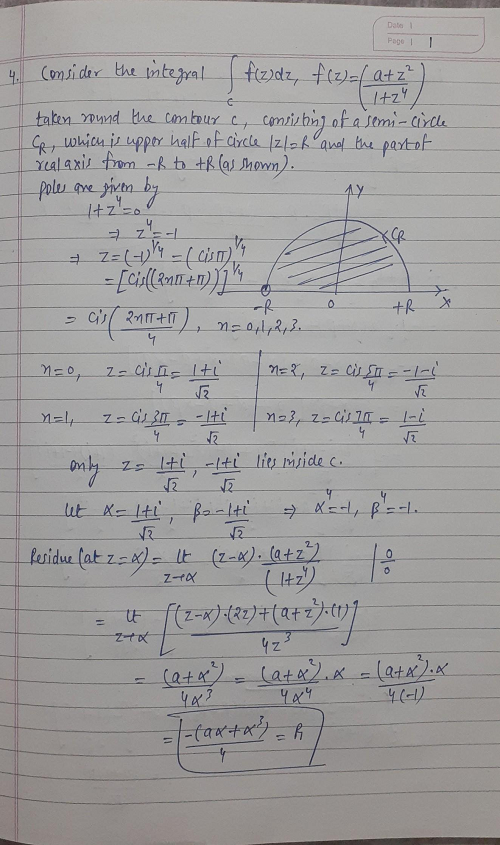 Date |
Page | 1
4. Consider the integral ∫_C f(z)dz, f(z)=((a+z²)/(1+z⁴))
taken round the contour c, consisting of a semi-circle
C_R, which is upper half of circle |z|=R and the part of
real axis from -R to +R (as shown).
poles are given by
1+z⁴=0
⇒ z⁴=-1
⇒ z=(-1)^(1/4) = (cisπ)^(1/4)
= [cis((2nπ+π))]^(1/4)
Y
C_R
-R 0 +R X
= cis((2nπ+π)/4), n=0,1,2,3.
n=0, z=cis π/4 = (1+i)/√2 | n=2, z=cis 5π/4 = (-1-i)/√2
n=1, z=cis 3π/4 = (-1+i)/√2 | n=3, z=cis 7π/4 = (1-i)/√2
only z= (1+i)/√2, (-1+i)/√2 lies inside c.
let α=(1+i)/√2, β=(-1+i)/√2 ⇒ α⁴=-1, β⁴=-1.
Residue (at z=α) = lt_(z→α) (z-α)·(a+z²)/(1+z⁴) | 0/0
= lt_(z→α) [((z-α)·(2z)+(a+z²)·(1))/4z³]
= (a+α²)/4α³ = (a+α²)·α/4α⁴ = (a+α²)·α/4(-1)
= -(aα+α³)/4 = R